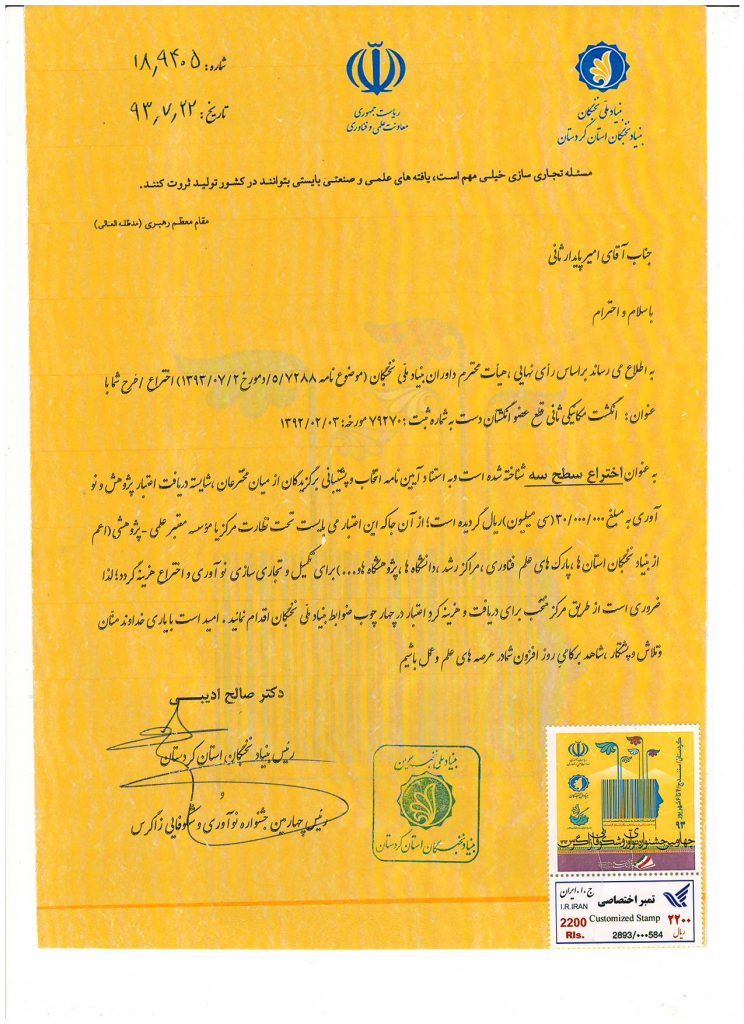 شماره: ۱۸٫۹۴۰۵
تاریخ: ۹۳٫۷٫۲۲
ریاست جمهوری
معاونت علمی و فناوری
بنیاد ملی نخبگان
بنیاد نخبگان استان کردستان
مسئله تجاری سازی خیلی مهم است، یافته های علمی و صنعتی بایستی بتوانند در کشور تولید ثروت کنند.
مقام معظم رهبری (مدظله العالی)
جناب آقای امیر پایدار ثانی
با سلام و احترام
به اطلاع می رساند براساس رأی نهایی ، هیأت محترم داوران بنیاد ملی نخبگان (موضوع نامه ۵/۷۲۸۸/د مورخ ۱۳۹۳/۰۷/۲) اختراع / طرح شما با
عنوان: انگشت مکانیکی ثانی قطع عضو انگشتان دست به شماره ثبت : ۷۹۲۷۰ مورخه: ۱۳۹۲/۰۲/۰۳
به عنوان اختراع سطح سه شناخته شده است و به استناد آیین نامه انتخاب و پشتیبانی برگزیدگان از میان مخترعان ، شایسته دریافت اعتبار پژوهش و نو
آوری به مبلغ ۳۰/۰۰۰/۰۰۰(سی میلیون)ریال گردیده است؛ از آن جا که این اعتبار می بایست تحت نظارت مرکز یا مؤسسه معتبر علمی - پژوهشی (اعم
از بنیاد نخبگان استان ها ، پارک های علم فناوری ، مراکز رشد ، دانشگاه ها ، پژوهشگاه ها و...) برای تکمیل و تجاری سازی نو آوری و اختراع هزینه گردد؛ لذا
ضروری است از طریق مرکز منتخب برای دریافت و هزینه کرد اعتبار در چهار چوب ضوابط بنیاد ملی نخبگان اقدام نمایید . امید است با یاری خداوند منّان
و تلاش و پشتکار ، شاهد برکامی روز افزون شما در عرصه های علم و عمل باشیم
دکتر صالح ادیبی
رئیس بنیاد نخبگان استان کردستان
و
رئیس چهارمین جشنواره نوآوری و شکوفایی زاگرس
بنیاد ملی نخبگان
بنیاد نخبگان استان کردستان
چهارمین جشنواره نوآوری و شکوفایی زاگرس
ج.ا.ایران
I.R.IRAN
تمبر اختصاصی
2200 Customized Stamp ۲۲۰۰
Rls. 2893/۰۰۰584 ریال